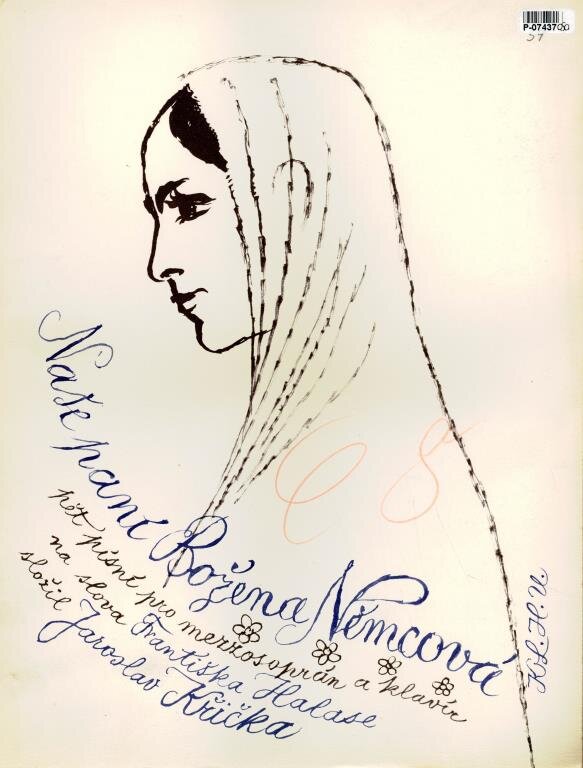 P-074370
37
Naše paní Božena Němcová
pět písní pro mezzosoprán a klavír
na slova Františka Halase
složil Jaroslav Křička
KL.H.U.